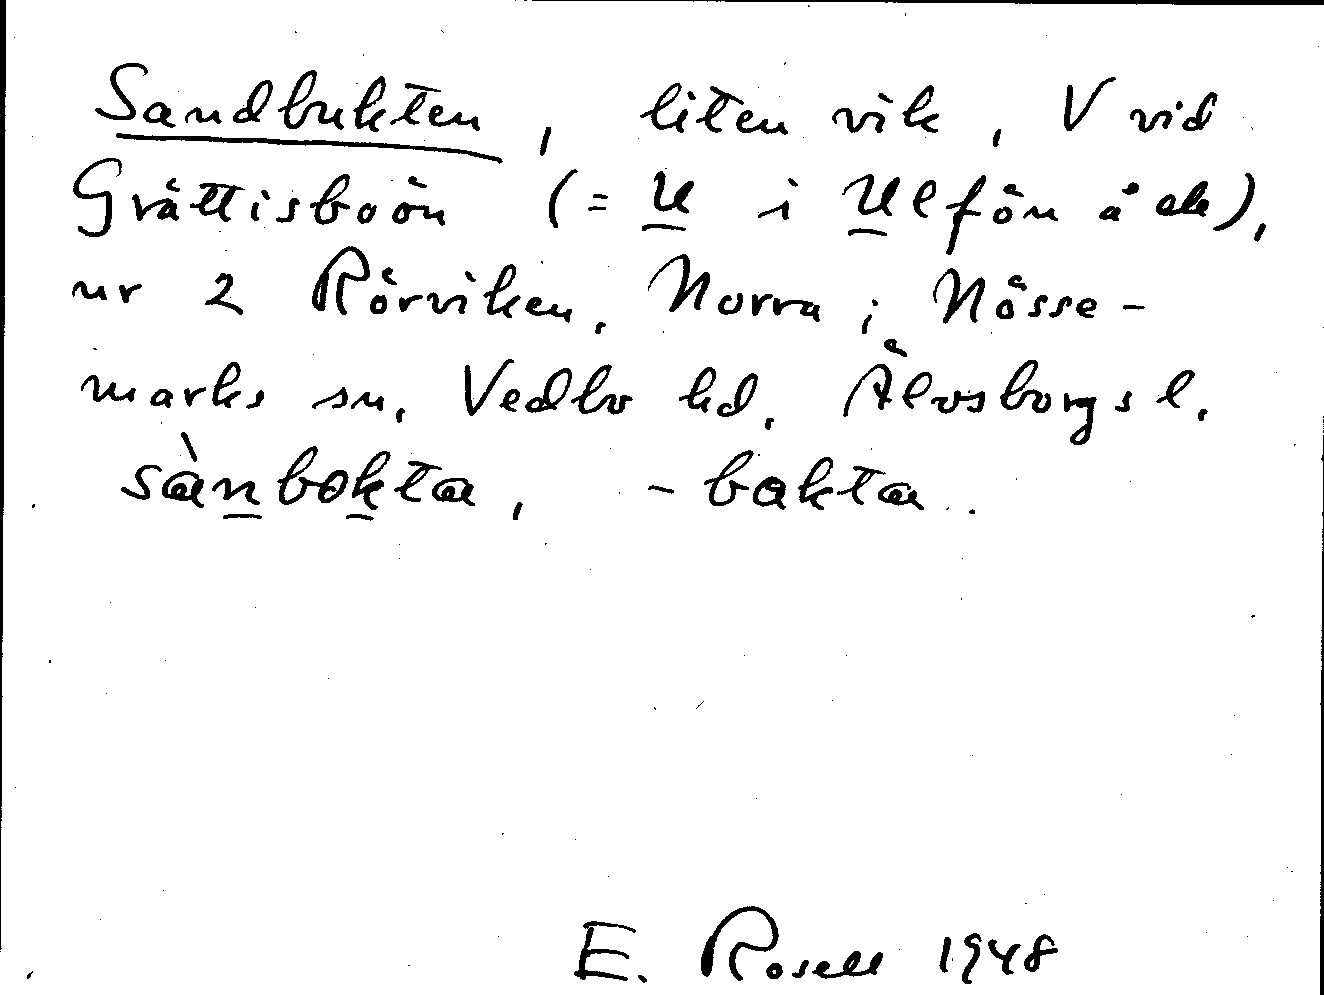 Sandbukten, liten vik, V vid
Grättisboön (= U i Ulfön å ek),
nr 2 Rörviken, Norra; Nösse-
marks sn, Vedbo hd, Älvsborgs l.
sànbokta, -bakta.
E. Rosell 1948